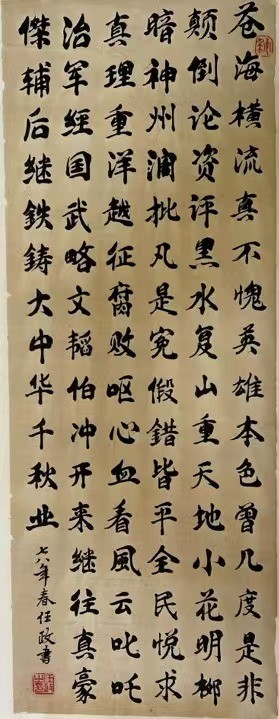 苍海横流真不愧英雄本色曾几度是非
颠倒论资评黑水复山重天地小花明柳
暗神州澜批凡是冤假错皆平全民悦求
真理重洋越征腐败呕心血看风云叱吒
治军经国武略文韬伯冲开来继往真豪
杰辅后继铁铸大中华千秋业
七八年春任政书